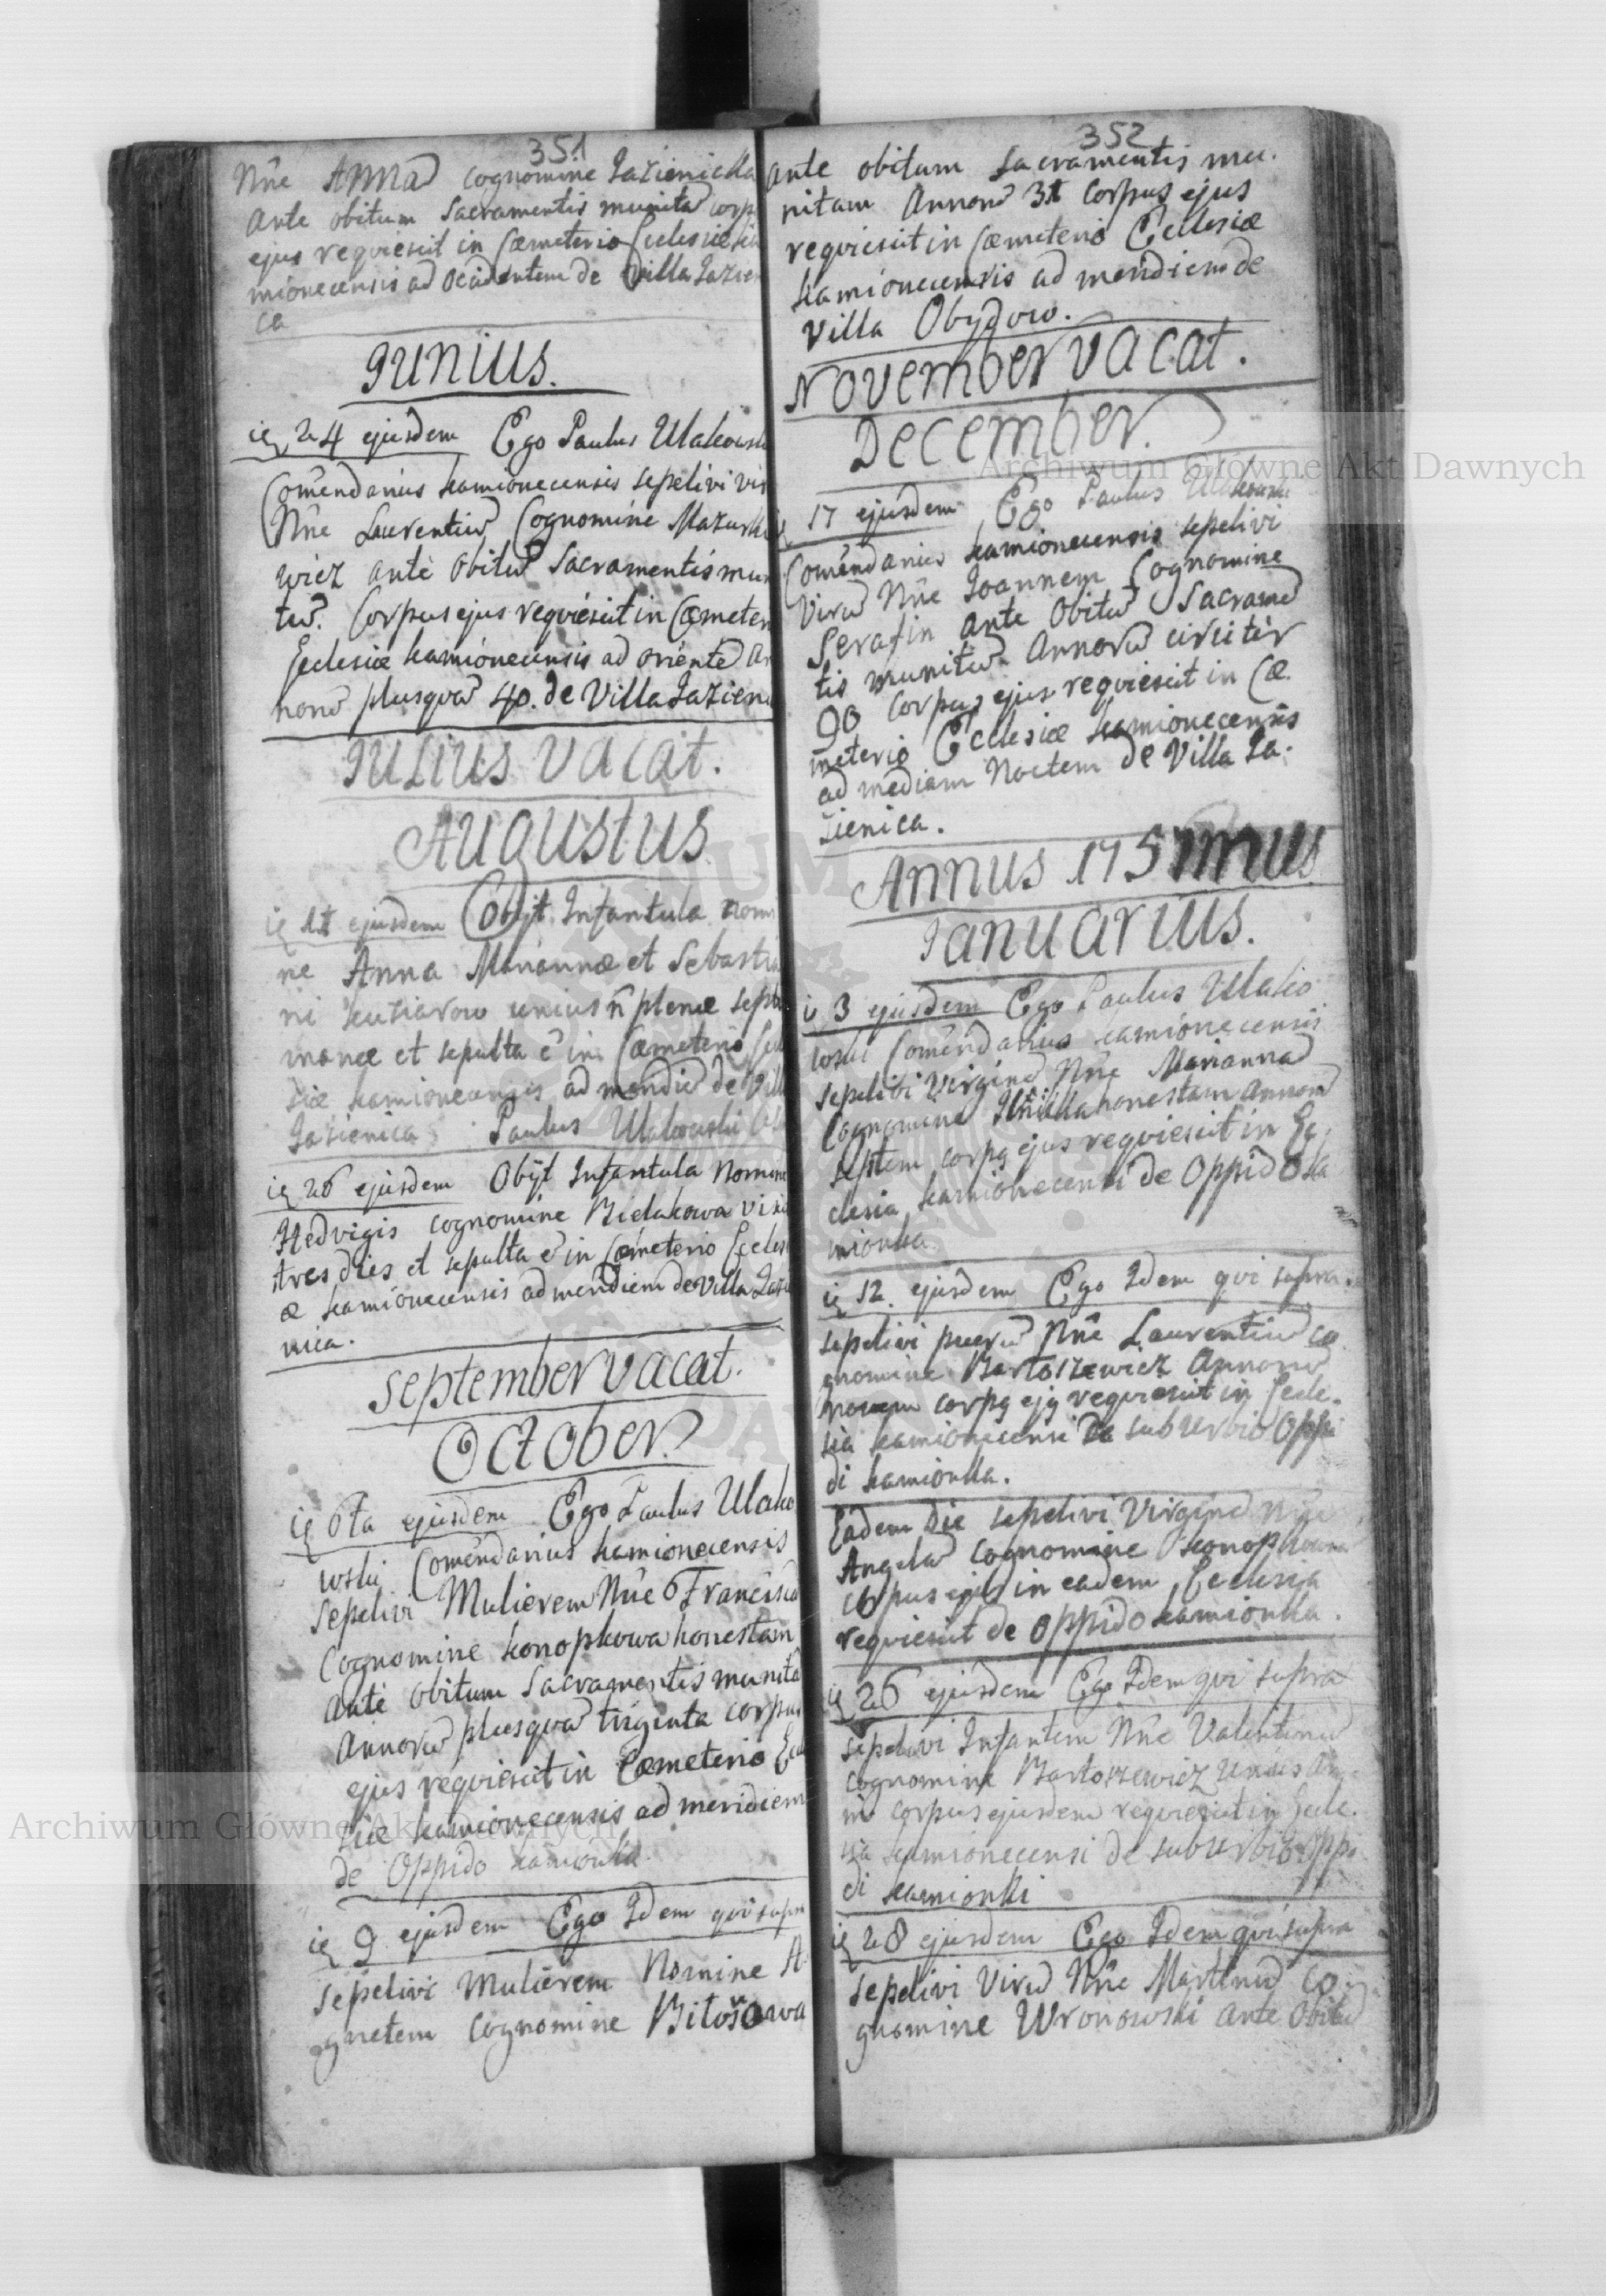 351
Nñe Annā cognomine Jazienicka
ante obitum Sacramentis munitā corp
ejus requiescit in Cœmeterio Ecclesiæ Ka
mionecensis ad Ocidentem de Villa Jazien
ca
Junius.
24 ejusdem Ego Paulus Ulakowski
Comēndarius Kamionecensis sepelivi vir
Nñe Laurentiū Cognomine Mazurki
wicz ante obitū Sacramentis mun
tū. Corpus ejus requiescit in Cœmeter
Ecclesiæ Kamionecensis ad orientē An
norū plusquā 40. de Villa Jazieni
Julius vacat.
Augustus
ejusdem Obijt Infantula nomi
ne Anna Mariannæ et Sebastia
ni unius ñ plenæ septi
manæ et sepulta ē in Cœmeterio Eccl
siæ Kamionecensis ad meridiē de Vill
Jazienica Paulus Ulakowski
26 ejusdem Obijt Infantula Nomine
Hedvigis cognomine Bielakowa vixi
tres dies et sepulta ē in Cœmeterio Eccles
æ Kamionecensis ad meridiem de Villa Jazie
nica.
September vacat.
October.
6ta ejusdem Ego Paulus Ulako
wski Comēndarius Kamionecensis
sepelivi Mulierem Nñe Franciscā
Cognomine Konopkowa honestam
ante obitum Sacramentis munitā
Annorū plusquā triginta corpus
ejus requiescit in Cœmeterio Eccle
siæ Kamionecensis ad meridiem
de Oppido Kamionka
9 ejusdem Ego Idem qui supra
sepelivi Mulierem Nomine A
gnetem Cognomine Bitosowa
352
ante obitum Sacramentis mu.
nitam Annorū 31 Corpus ejus
requiescit in Cœmeterio Ecclesiæ
Kamionecensis ad meridiem de
Villa Obydow.
November vacat.
December.
17 ejusdem Ego Paulus Ulakowski
Comēndarius Kamionecensis sepelivi
Virū Nñe Joannem Cognomine
Serafin ante Obitū Sacramē
tis munitū Annorū circiter
90 corpus ejus requiescit in Cœ.
meterio Ecclesiæ Kamionecensis
ad mediam Noctem de Villa Ja.
zienica.
Annus 175
Januarius.
3 ejusdem Ego Paulus Ulako
wski Comēndarius Kamionecensis
sepelivi Virginē Nñe Mariannā
Cognomine honestam Annorū
septem corpq ejus requiescit in Ec
clesia Kamionecensi de Oppido Ka
mionka
12 ejusdem Ego Idem qui supra.
sepelivi puerū Nñe Laurentiū co
gnomine Bartoszewicz Annorū
novem corpq ejq requiescit in Eccle.
sia Kamionecensi de suburbio Oppi
di Kamionka.
Eadem Die sepelivi Virginē Nñe
Angelā Cognomine Konopkowna
corpus ejus in eadem Ecclesia
requiescit de Oppido Kamionka.
26 ejusdem Ego Idem qui supra
sepelivi Infantem Nñe Valentinū
cognomine Bartoszewicz unius An
ni corpus ejusdem requiescit in Eccle.
sia Kamionecensi de suburbio Oppi
di Kamionki
28 ejusdem Ego Idem qui supra
sepelivi Virū Nñe Martinū Co.
gnomine Wronowski ante Obitū
Archiwum Główne Akt Dawnych
Archiwum Główne Akt Dawnych